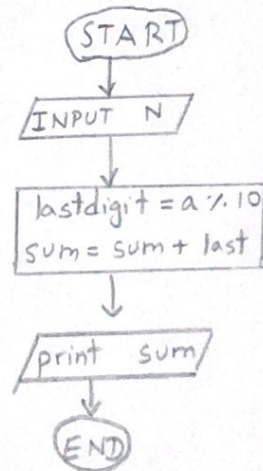 START
INPUT N
lastdigit = a % 10
sum = sum + last
print sum
END